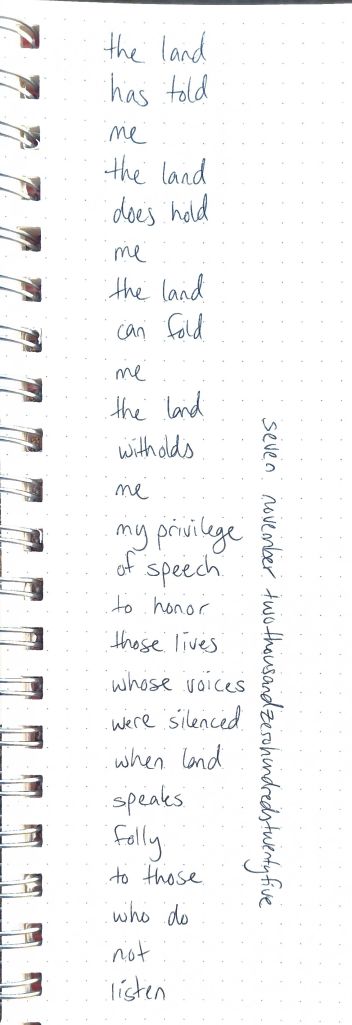 the land
has told
me
the land
does hold
me
the land
can fold
me
the land
witholds
me
my privilege
of speech
to honor
those lives
whose voices
were silenced
when land
speaks
folly
to those
who do
not
listen
seven november twothousandzerohundredstwentyfive